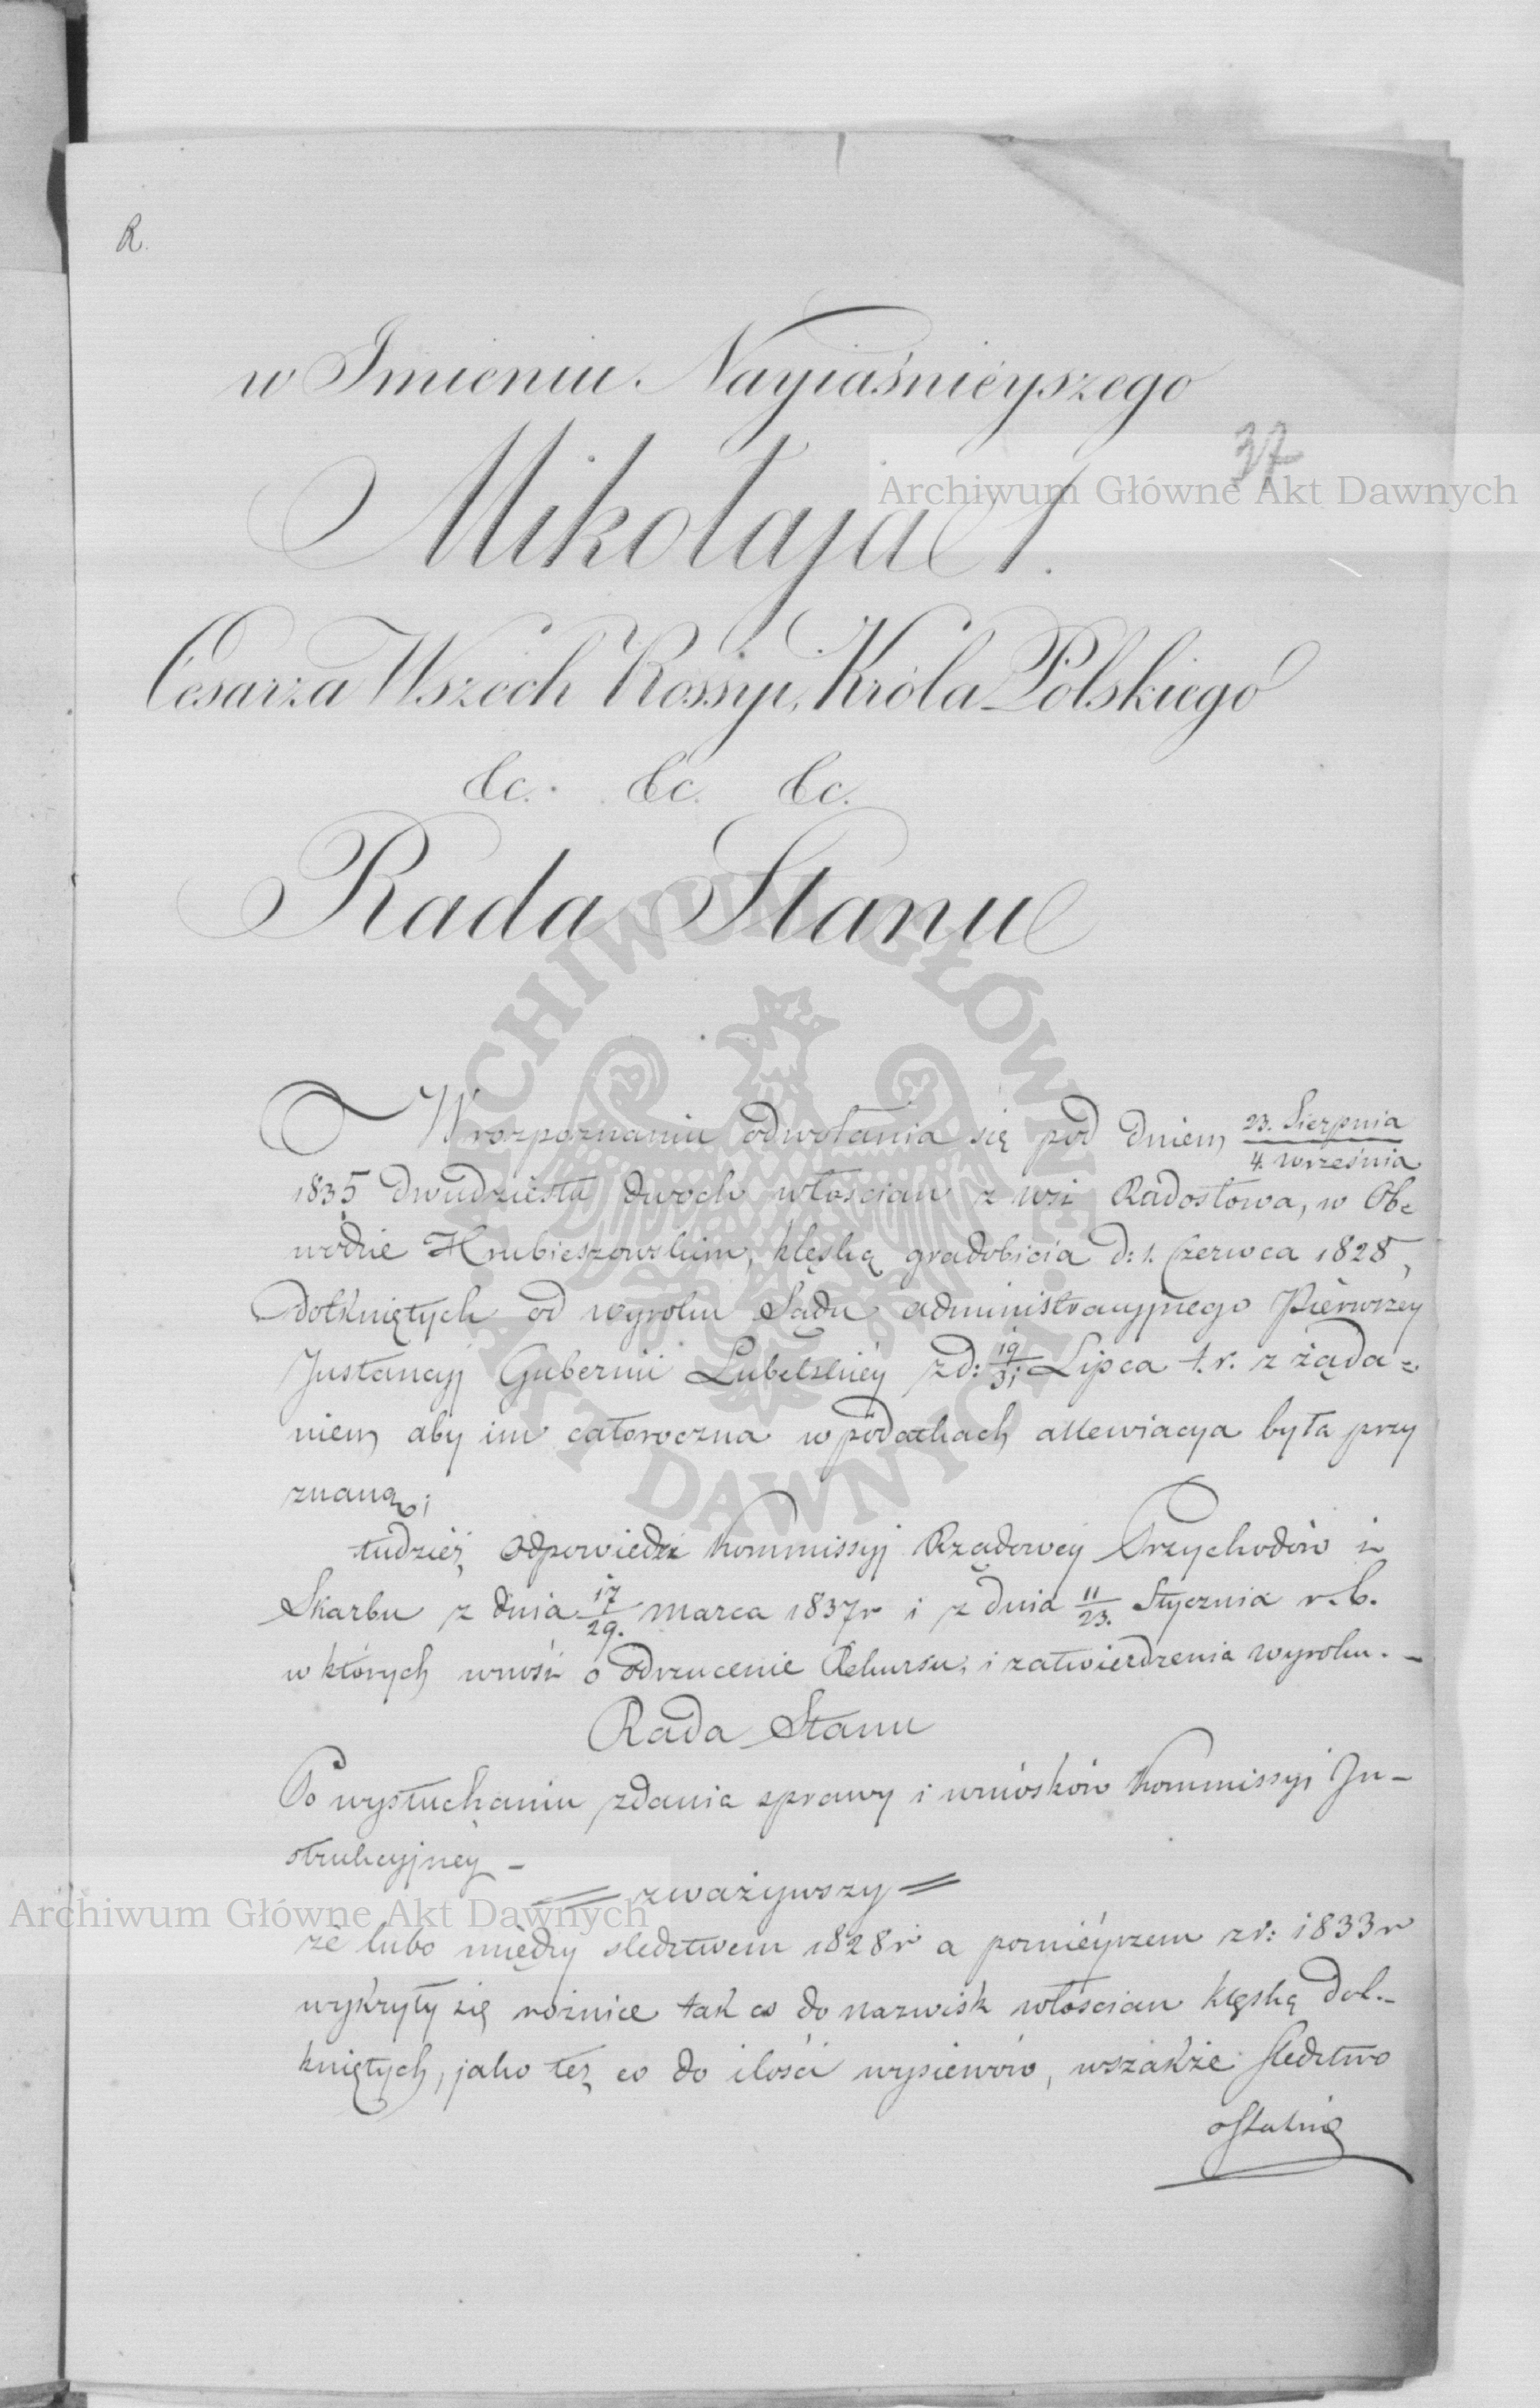 R.
w Imieniu Nayiaśnieyszego
37
Mikołaja I.
Cesarza Wszech Rossyi, Króla Polskiego
&c. &c. &c.
Rada Stanu
W rozpoznaniu odwołania się pod dniem 23. Sierpnia / 4. września
1835 dwudziestu dwoch włoscian z wsi Radostowa, w Ob=
wodzie Hrubieszowskim, klęską gradobicia d: 1. Czerwca 1828,
dotkniętych od wyroku Sądu administracyjnego Pierwszey
Instancyj Gubernii Lubelskiéy z d: 19/31 Lipca t. r. z żąda=
niem aby im całoroczna w podatkach allewiacya była przy
znaną;
tudzież odpowiedzi Kommissyj Rządowey Przychodów i
Skarbu z dnia 17/29. marca 1837 r i z dnia 11/23. Stycznia r. b.
w których wnosi o odrzucenie Rekursu, i zatwierdzenia wyroku. -
Rada Stanu
Po wysłuchaniu zdania sprawy i wniosków Kommissyi In-
strukcyjney -
= zważywszy =
że lubo między sledztwem 1828 r a pornieyszem z r: 1833 r
wykryły się rożnice tak co do nazwisk włoscian klęską dot-
kniętych, jako też co do ilości wysiewów, wszakże sledztwo
ostatnie
Archiwum Główne Akt Dawnych
Archiwum Główne Akt Dawnych
ARCHIWUM GŁÓWNE AKT DAWNYCH